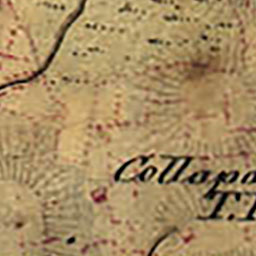 Collapa
T.